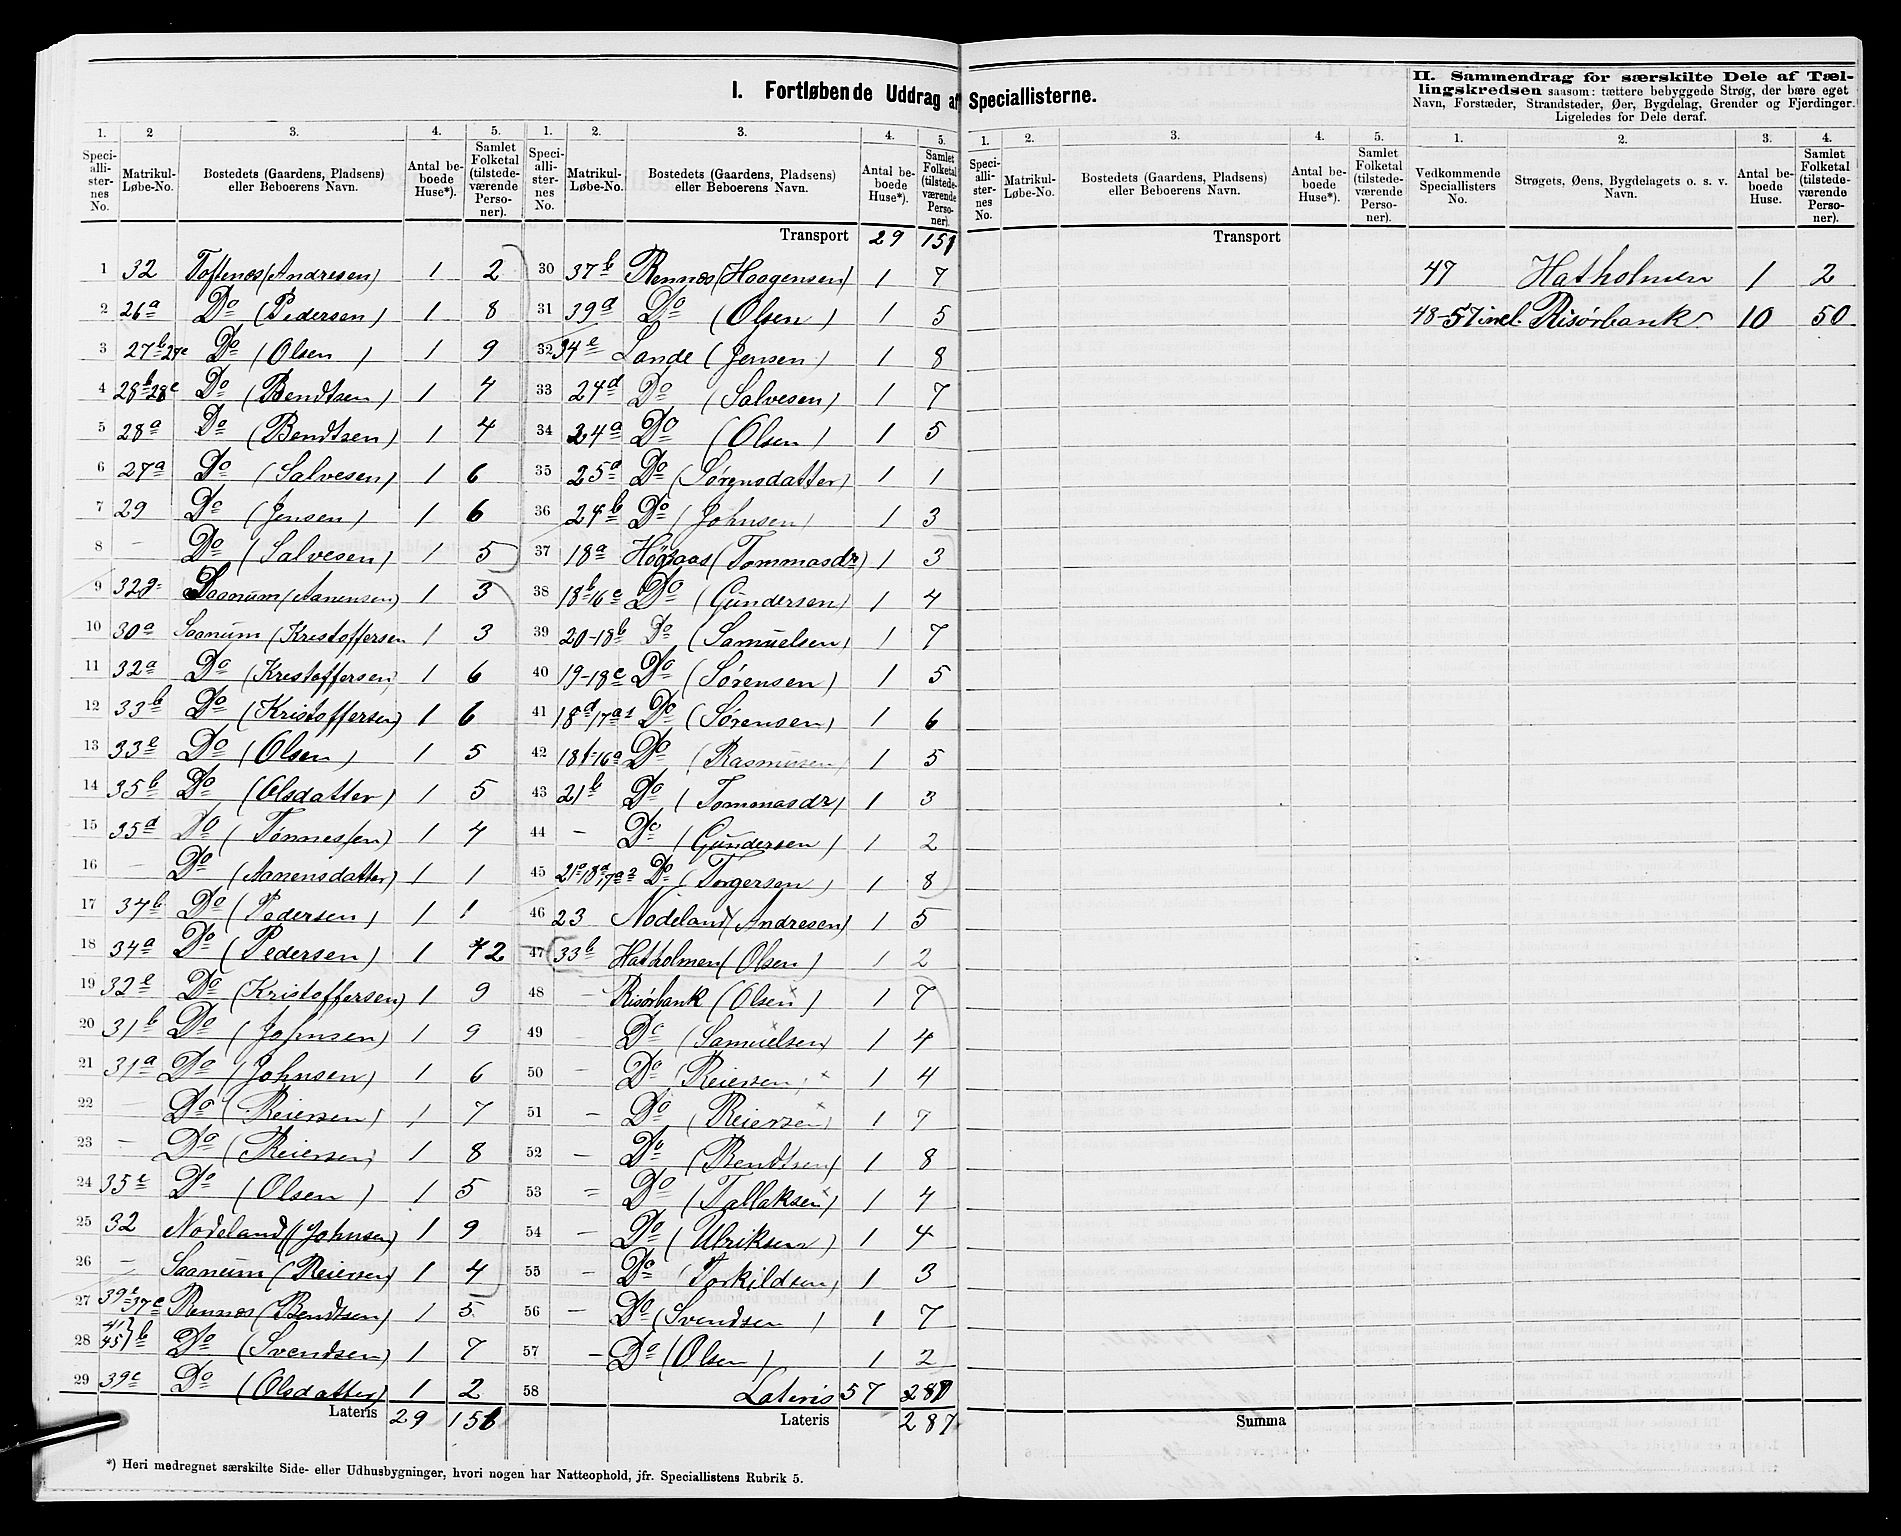 I. Fortløbende Uddrag af Speciallisterne.
1. 2 3. 4. 5.
Speciallisternes No. Matrikul-Løbe-No. Bostedets (Gaardens, Pladsens) eller Beboerens Navn. Antal beboede Huse*). Samlet Folketal (tilstedeværende Personer).
1 32 Toftenes (Andresen) 1 2
2 26a Do (Pedersen) 1 8
3 27b-27c Do (Olsen) 1 9
4 28b-28c Do (Bendtsen) 1 7
5 28a Do (Bendtsen) 1 4
6 27a Do (Salvesen) 1 6
7 29 Do (Jensen) 1 6
8 – Do (Salvesen) 1 5
9 Saanum (Aanensen) 1 3
10 30a Saanum (Kristoffersen 1 3
11 32a Do (Kristoffersen) 1 6
12 33b Do (Kristoffersen) 1 6
13 33c Do (Olsen) 1 5
14 35b Do (Olsdatter) 1 5
15 35d Do (Tønnessen) 1 4
16 – Do (Aanensdatter) 1 1
17 34b Do (Pedersen) 1 1
18 34a Do (Pedersen) 1 2
19 32e Do (Kristoffersen) 1 9
20 31b Do (Johnsen) 1 9
21 31a Do (Johnsen) 1 6
22 – Do (Reiersen) 1 7
23 – Do (Reiersen) 1 8
24 35c Do (Olsen) 1 5
25 32 Nodeland (Johnsen) 1 9
26 – Saanum (Reiersen) 1 4
27 Rennes (Bendtsen) 1 5
28 Do (Svendsen) 1 7
29 39c Do (Olsdatter) 1 2
Lateris 29 151
*) Heri medregnet særskilte Side- eller Udhusbygninger, hvori nogen har Natteophold, jfr. Speciallistens Rubrik 5.
1. 2. 3. 4. 5.
Speciallisternes No. Matrikul-Løbe-No. Bostedets (Gaardens, Pladsens) eller Beboerens Navn. Antal beboede Huse*). Samlet Folketal (tilstedeværende Personer).
Transport 29 151
30 37b Rennes (Haagensen) 1 7
31 39a Do (Olsen) 1 5
32 34e Lande (Jensen) 1 8
33 24d Do (Salvesen) 1 7
34 24a Do (Olsen) 1 5
35 25a Do (Sørensdatter) 1 1
36 24b Do (Johnsen) 1 3
37 18a Høgsaas (Tommasdr) 1 3
38 18b-16c Do (Gundersen) 1 4
39 20-18b Do (Samuelsen) 1 7
40 19-18c Do (Sørensen) 1 5
41 18d-17a1 Do (Sørensen) 1 6
42 18f-16a Do (Rasmusen) 1 5
43 21b Do (Tommasdr) 1 3
44 – Do (Gundersen) 1 2
45 Do (Torgersen) 1 8
46 23 Nodeland (Andresen) 1 5
47 33b Hatholmen (Olsen) 1 2
48 – Risørbank (Olsen) 1 7
49 Do (Samuelsen) 1 4
50 – Do (Reiersen) 1 4
51 – Do (Reiersen) 1 7
52 – Do (Bendtsen) 1 8
53 = Do (Tallaksen) 1 4
54 – Do (Ulriksen) 1 4
55 – Do (Torkildsen) 1 3
56 – Do (Svendsen) 1 7
57 – Do (Olsen) 1 2
58 Lateris 57 287
Lateris 287
1. 2. 3. 4. 5.
Speciallisternes No. Matrikul-Løbe-No. Bostedets (Gaardens, Pladsens) eller Beboerens Navn. Antal beboede Huse*). Samlet Folketal (tilstedeværende Personer).
Transport
Summa
II. Sammendrag for særskilte Dele af Tællingskredsen saasom: tættere bebyggede Strøg, der bære eget
Navn, Forstæder, Strandsteder, Øer, Bygdelag, Grender og Fjerdinger.
Ligeledes for Dele deraf.
1. 2. 3. 4.
Vedkommende Speciallisters No. Strøgets, Øens, Bygdelagets o. s. v. Navn. Antal beboede Huse. Samlet Folketal (tilstedeværende Personer).
47 Hatholmen 1 2
48-57 incl. Risørbank 10 50